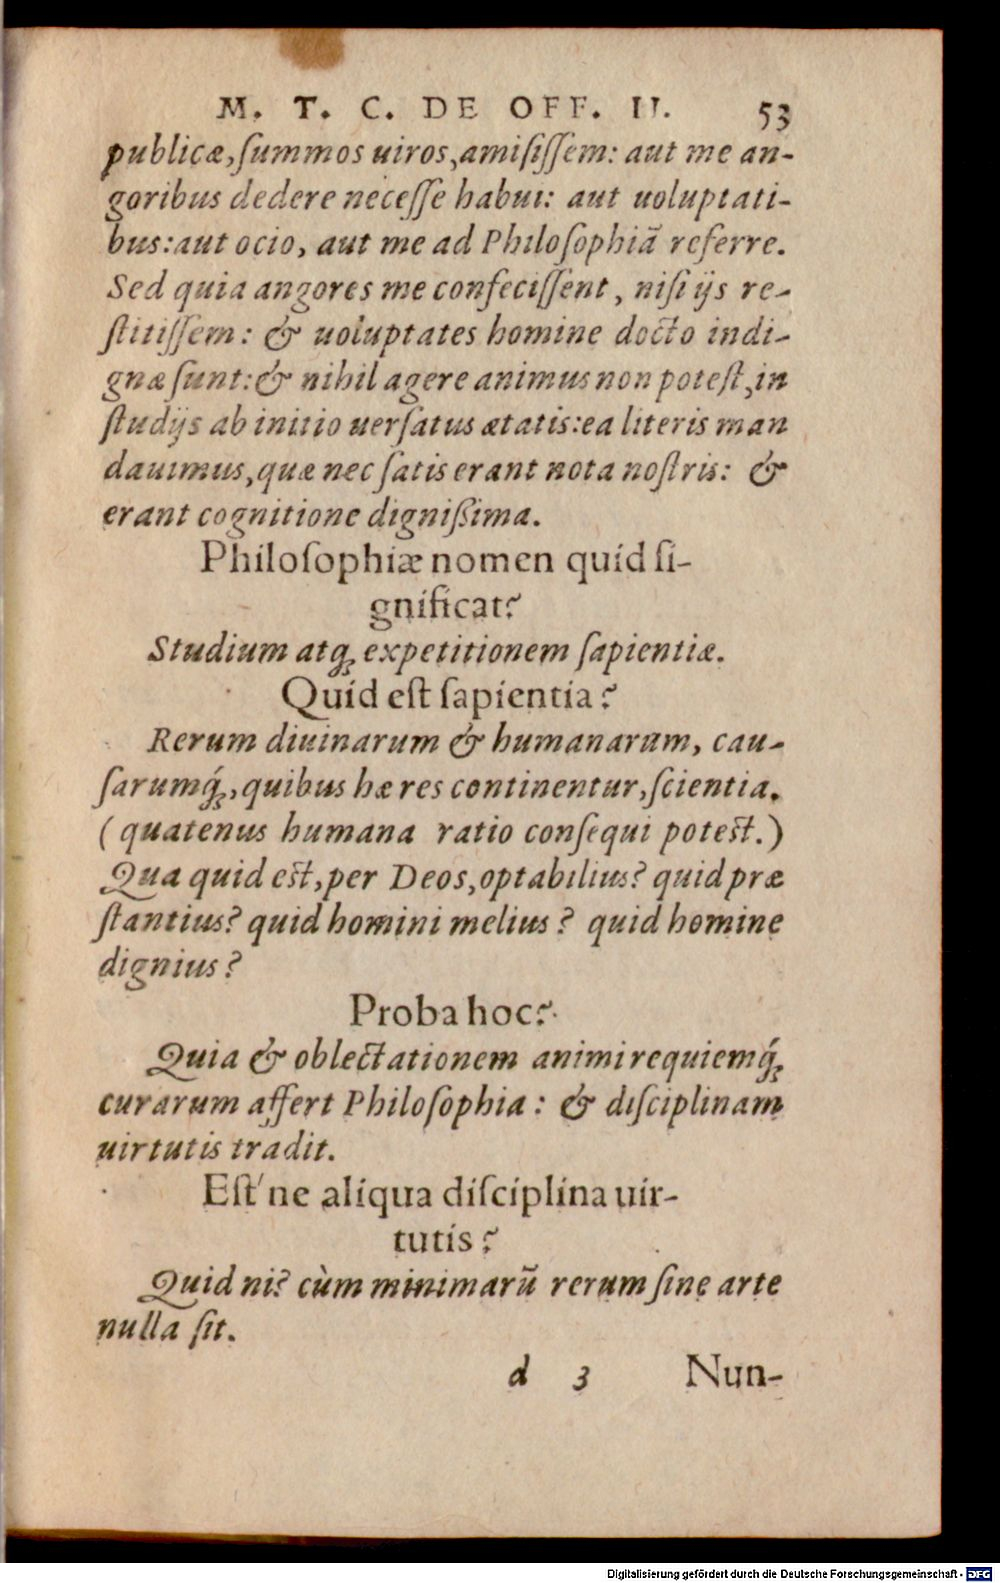 M. T. C. DE OFF. II. 53
publicæ, ſummos uiros, amiſiſſem: aut me an-
goribus dedere neceſſe habui: aut uoluptati-
bus: aut ocio, aut me ad Philoſophiã referre.
Sed quia angores me confeciſſent, niſi ijs re-
ſtitiſſem: & uoluptates homine docto indi-
gnæ ſunt: & nihil agere animus non poteſt, in
ſtudijs ab initio uerſatus ætatis: ea literis man
dauimus, quæ nec ſatis erant nota noſtris: &
erant cognitione digniſſima.
Philoſophiæ nomen quid ſi-
gnificat?
Studium atq; expetitionem ſapientiæ.
Quid eſt ſapientia?
Rerum diuinarum & humanarum, cau-
ſarumq́;, quibus hæ res continentur, ſcientia.
(quatenus humana ratio conſequi poteſt.)
Qua quid eſt, per Deos, optabilius? quid præ
ſtantius? quid homini melius? quid homine
dignius?
Proba hoc?
Quia & oblectationem animi requiemq́;
curarum affert Philoſophia: & diſciplinam
uirtutis tradit.
Eſt'ne aliqua diſciplina uir-
tutis?
Quid ni? cùm minimarũ rerum ſine arte
nulla ſit.
d 3 Nun-
Digitalisierung gefördert durch die Deutsche Forschungsgemeinschaft - DFG